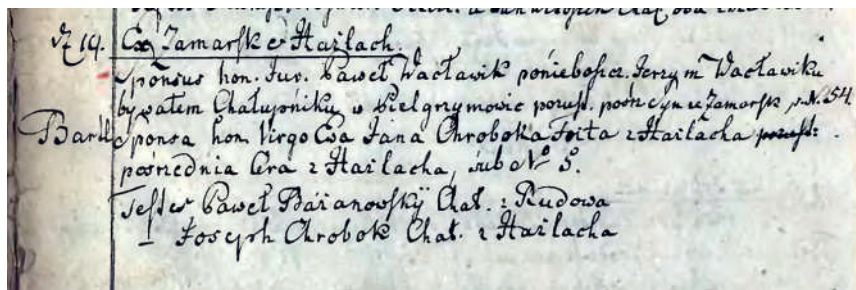 d. 19. Ex Zamarsk et Hażlach.
Sponsus hon. Juv. Paweł Wacławik poniebosz. Jerzym Wacławiku
bywałem Chałupniku w Pielgrzymowic pozust. pośr. syn ze Zamarsk sub N. 54.
Bartl Sponsa hon. Virgo Ewa Jana Chroboka Foita z Hażlacha
pośrednia Cera z Hażlacha, sub N° 5.
Testes Paweł Bażanowsky Chał. z Rudowa
Joseph Chrobok Chał. z Hażlacha